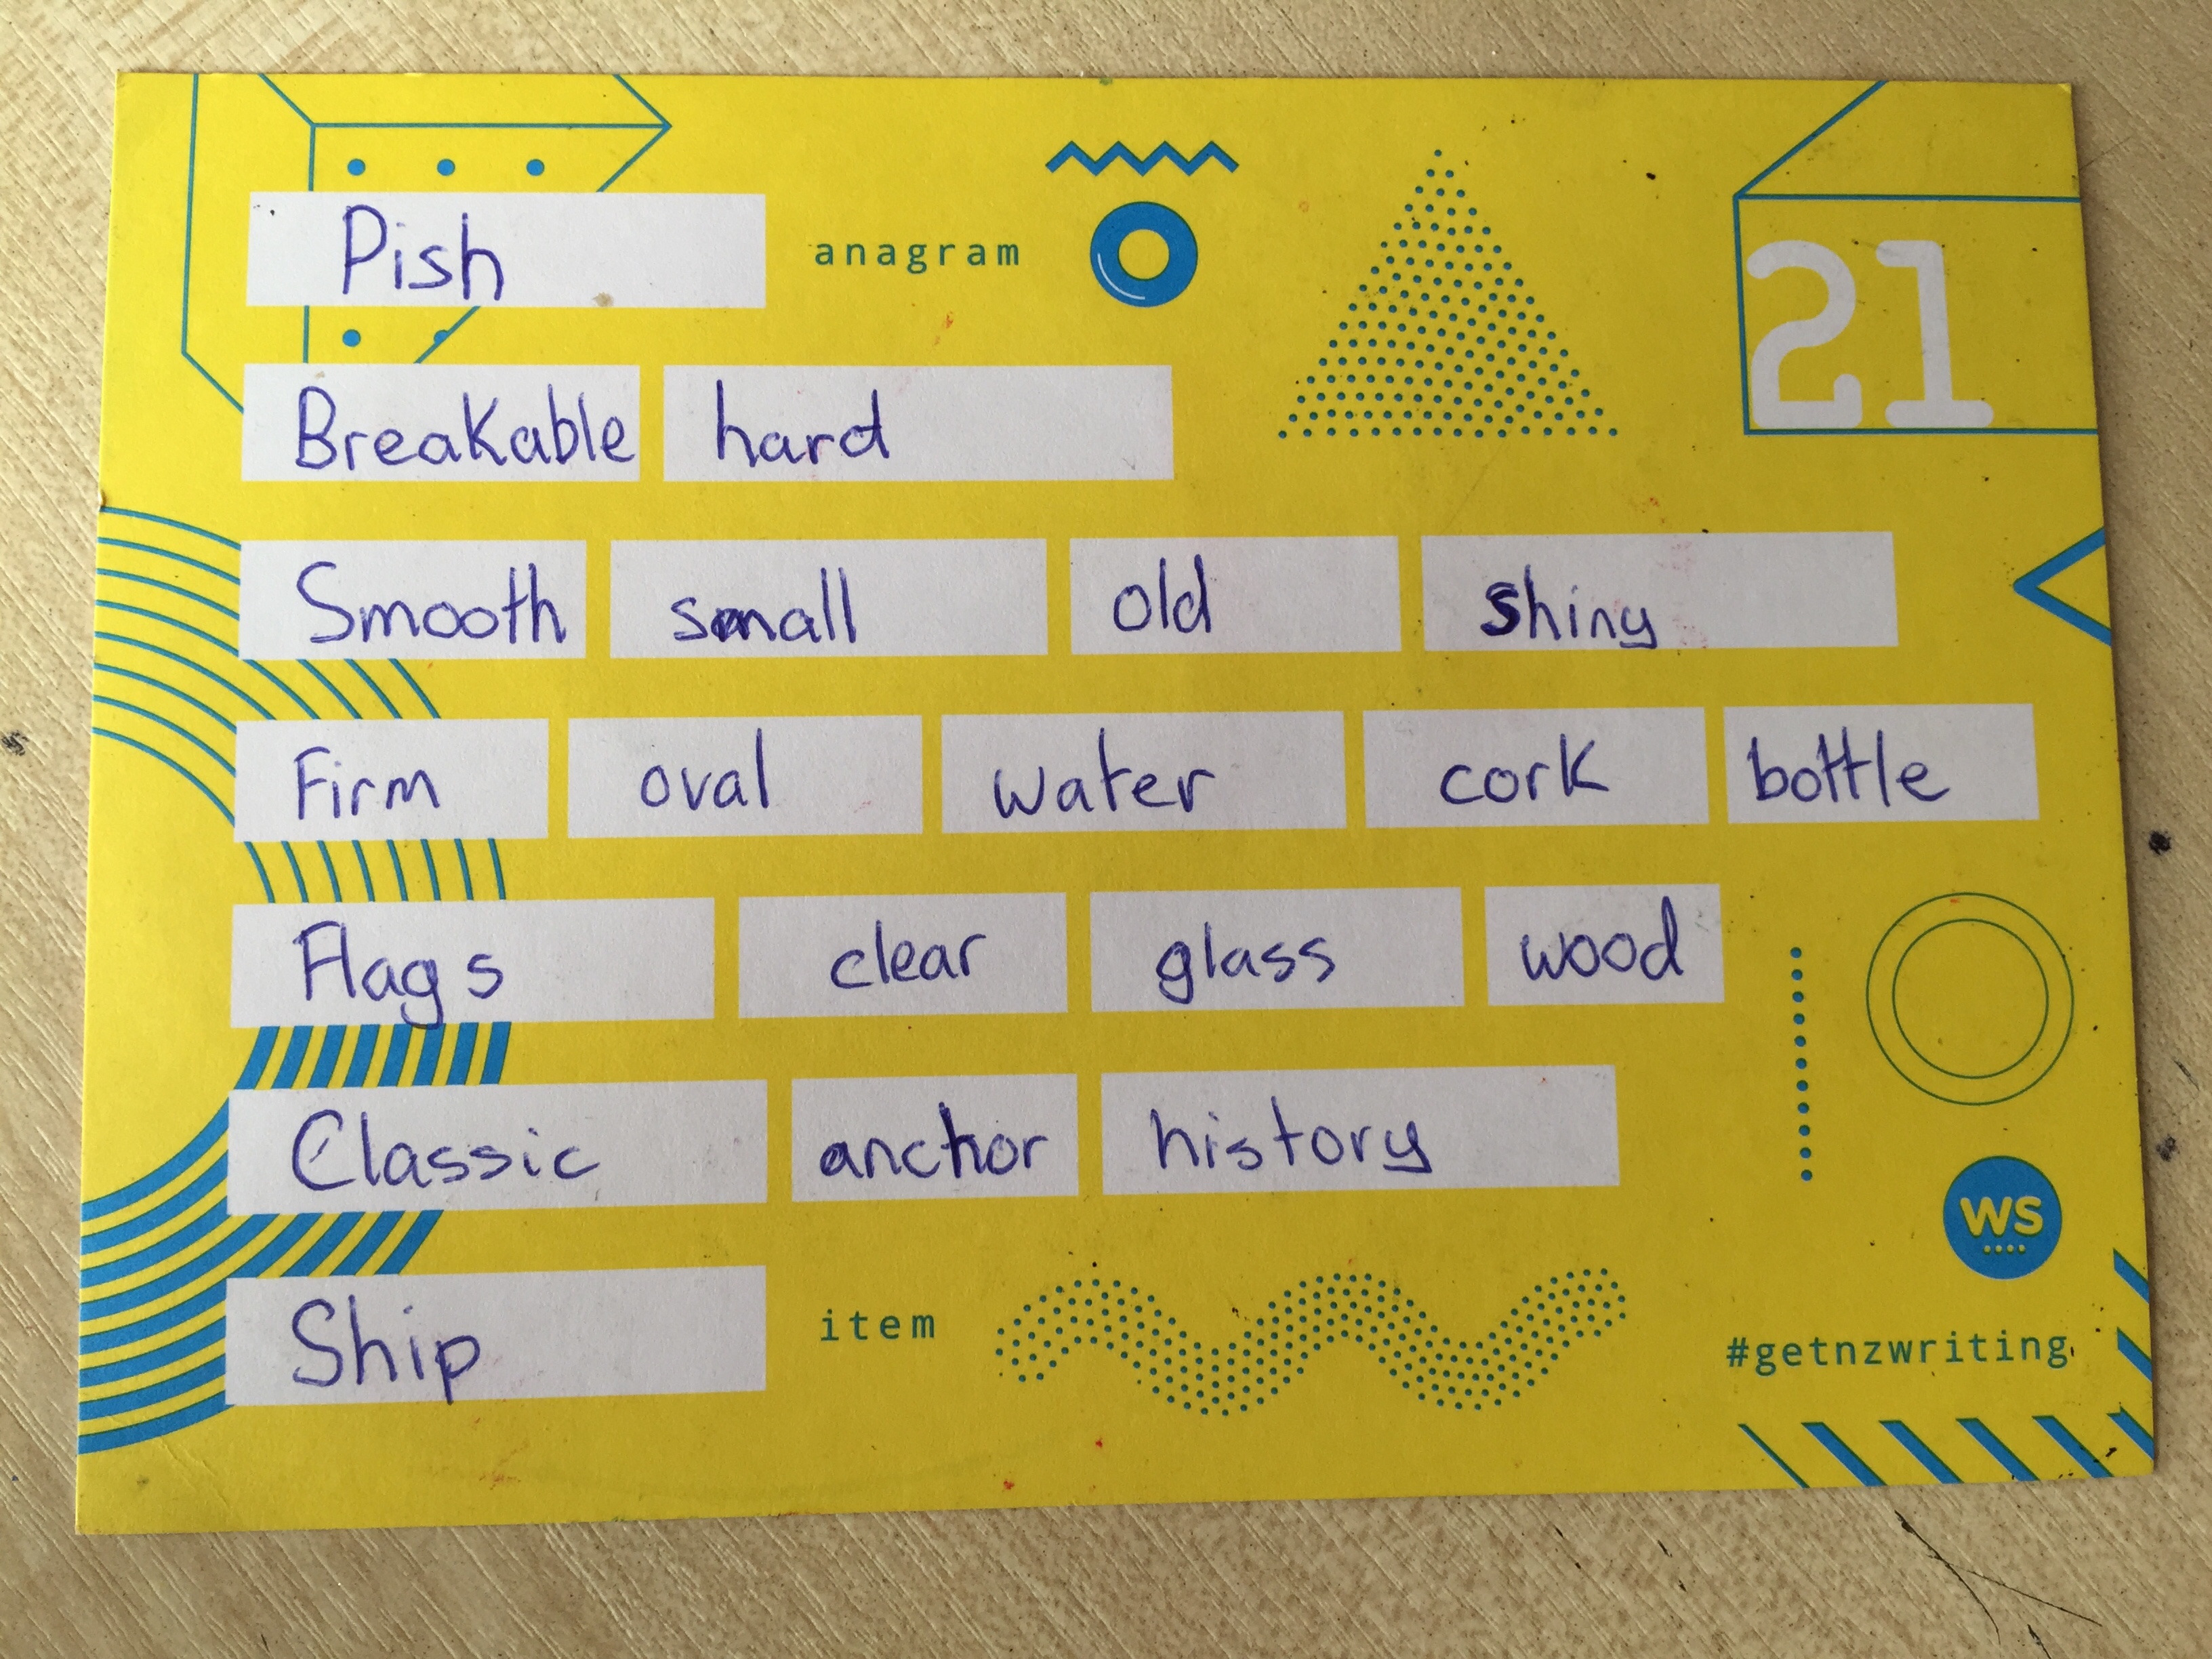 Pish anagram
21
Breakable hard
Smooth small old shiny
Firm oval water cork bottle
Flags clear glass wood
Classic anchor history
WS
Ship item
#getnzwriting